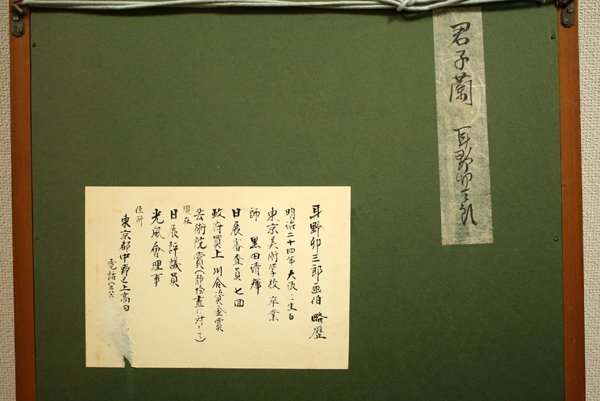 君子蘭 耳野卯三郎
耳野卯三郎画伯 略歴
明治二十四年 大阪に生る
東京美術学校 卒業
師 黒田清輝
日展審査員 七回
政府買上 川合賞金賞
芸術院賞(静物画に対して)
現在
日展評議員
光風會理事
住所
東京都中野区上高田
電話